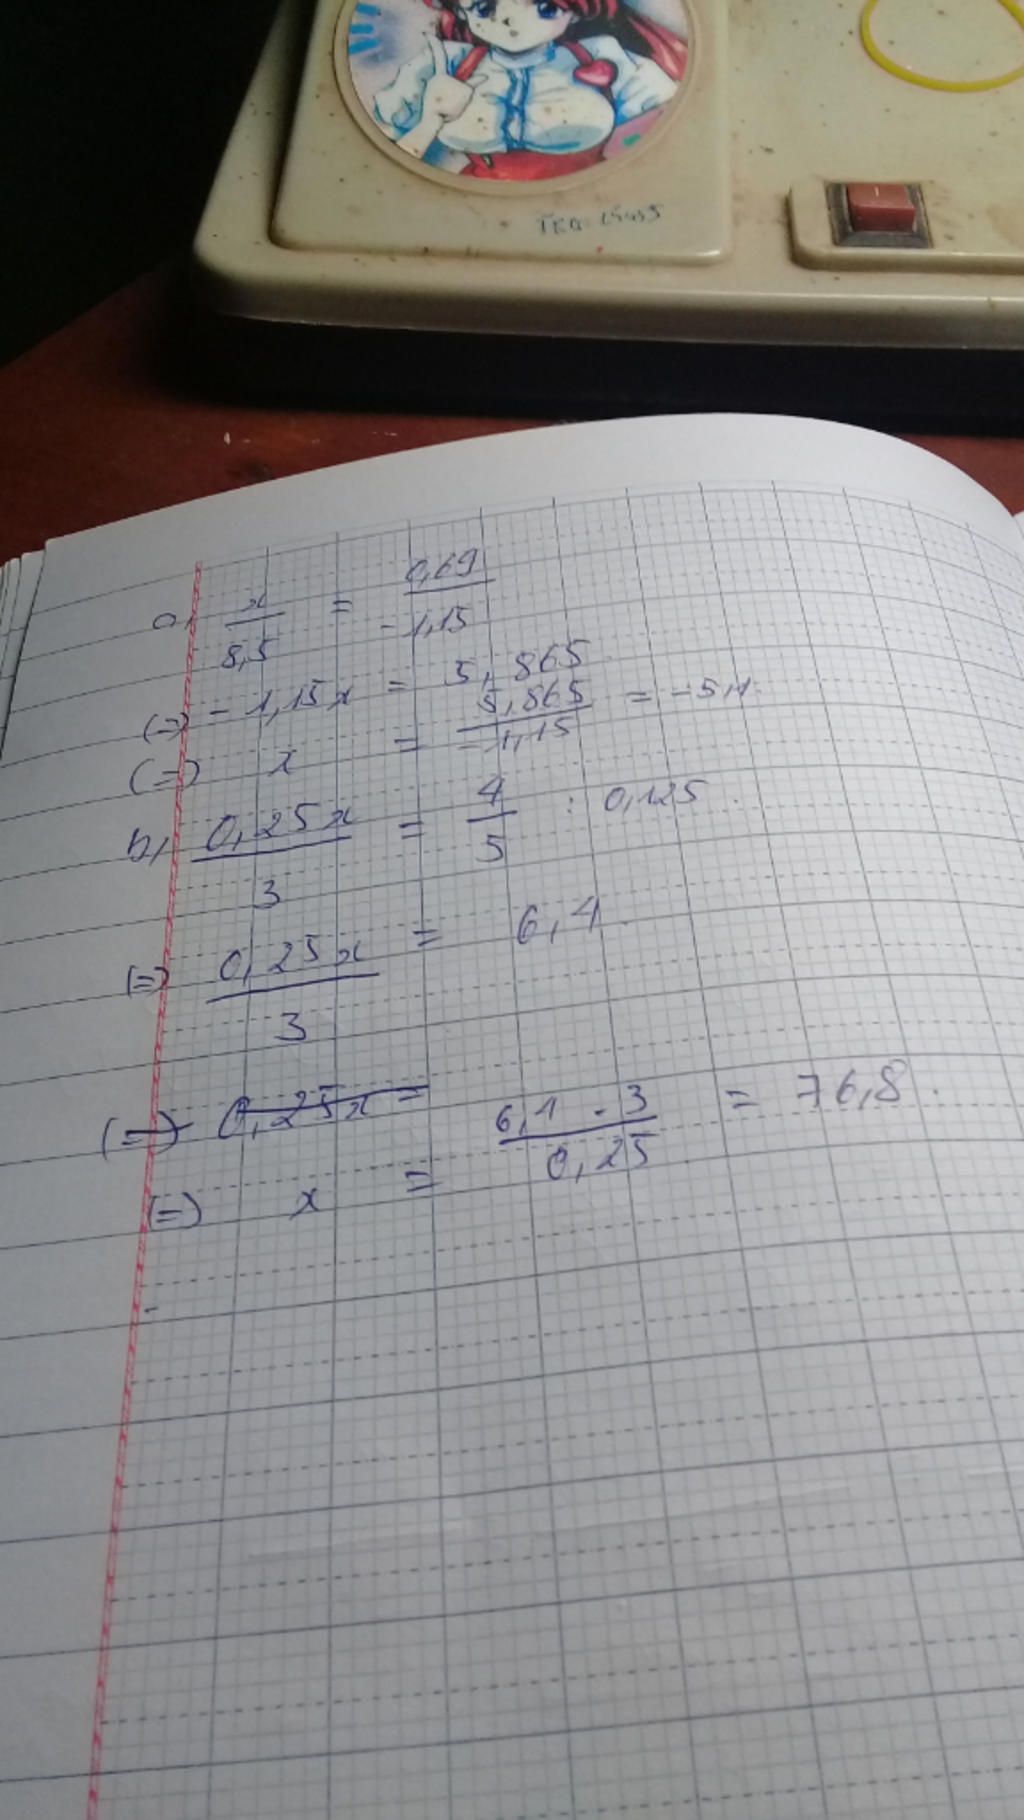 a, x/8,5 = 0,69/-1,15
(=) - 1,15x = 5,865
(=) x = 5,865/-1,15 = -5,1.
b, 0,25x/3 = 4/5 : 0,125.
(=) 0,25x/3 = 6,4.
(=) 0,25x =
(=) x = 6,4 . 3/0,25 = 76,8.